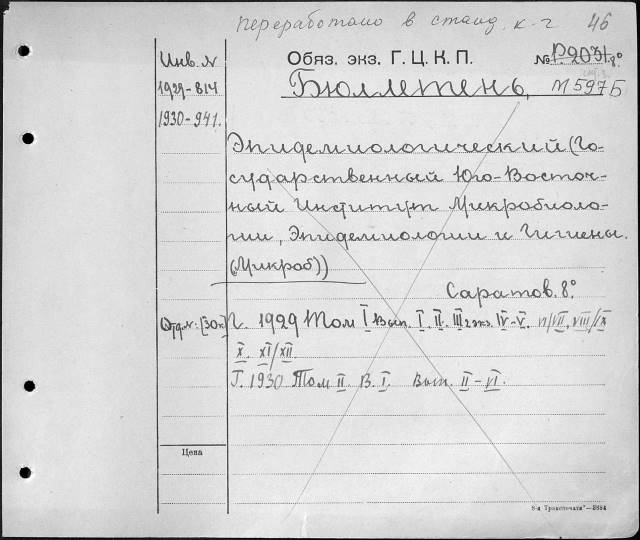 переработано в станд. к-г 46
Инв. N Обяз. экз. Г. Ц. К. П. № Р.2031.8º
1929-814 Бюллетень, М597Б
1930-941.
Эпидемиологический (Го-
сударственный Юго-Восточ-
ный Институт Микробиоло-
гии, Эпидемиологии и Гигиены.
(Микроб))
Саратов. 8º.
Отд. N: [30к] Г. 1929 Том I Вып. I. II. III 2 экз. IV-V. VI/VII, VIII/IX
X. XI/XII.
Г. 1930 Том II. В. I. Вып. II-VI.
Цена
8-я "Транспечати"—8884